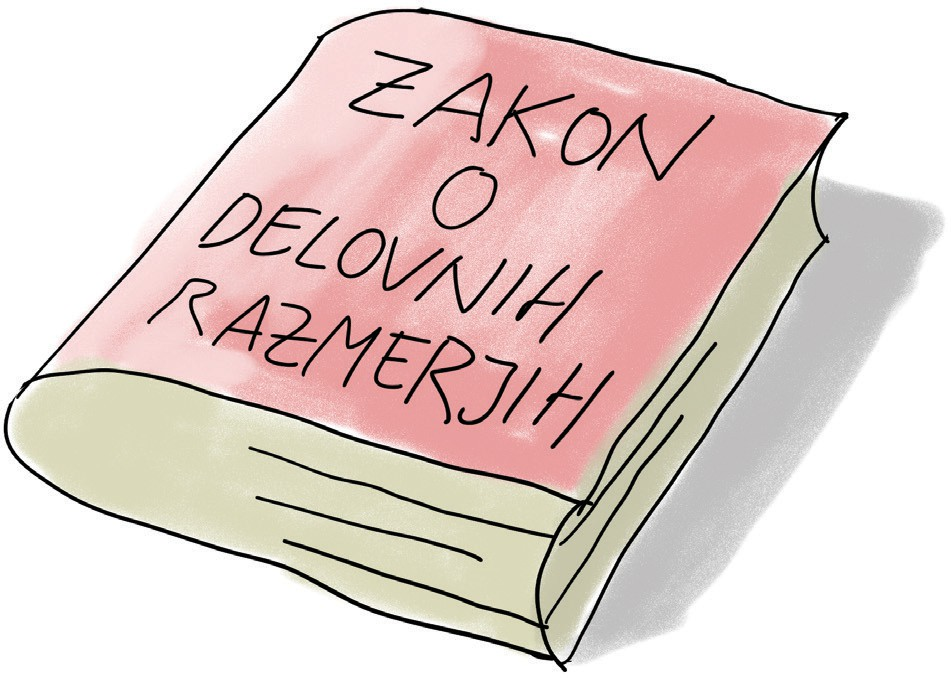 ZAKON
O
DELOVNIH
RAZMERJIH